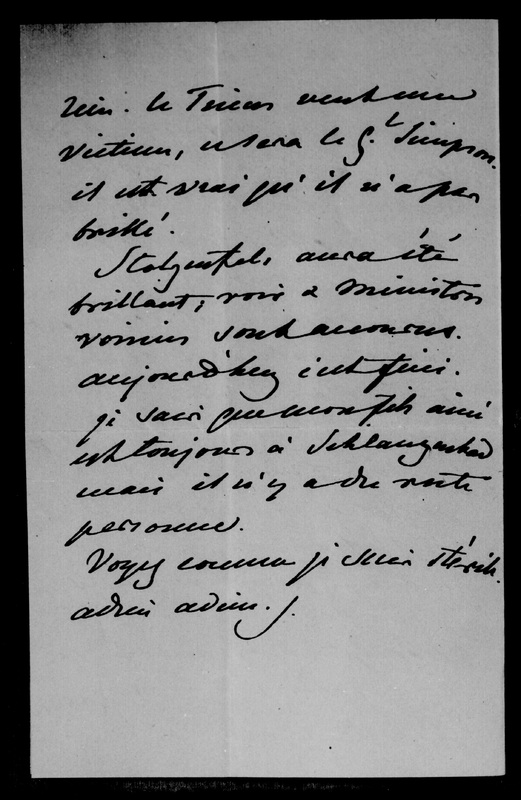 rien. le Times veut une
victime, ce sera le G.L Simpson.
il est vrai qu'il n'a pas
brillé.
Stolzenfels aura été
brillant; rois & Ministres
voisins sont accourus.
aujourd'huy c'est fini.
je sais que mon fils ainé
est toujours à Schlangenbad
mais il n'y a du reste
personne.
Voyez comme je suis stérile.
adieu adieu.